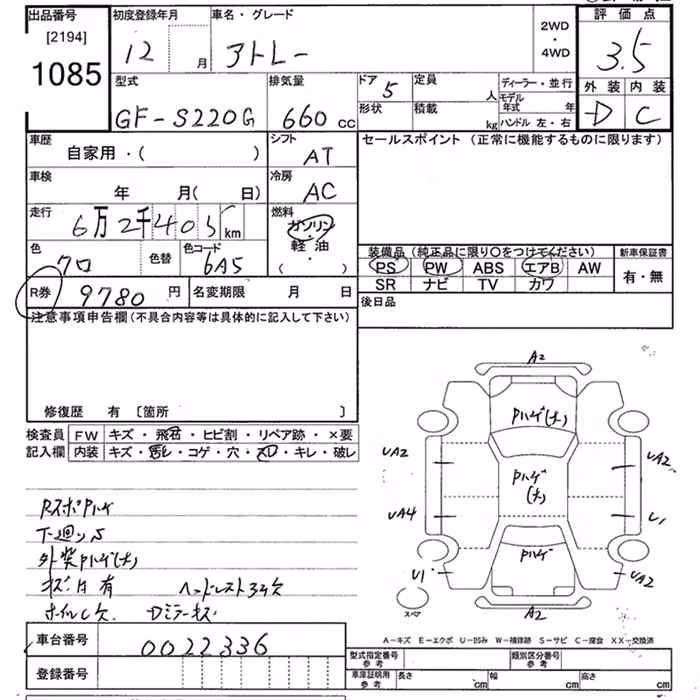 出品番号 初度登録年月 車名・グレード 2WD・4WD 評価点
[2194]
1085 12 月 アトレー 3.5
型式 排気量 ドア 5 定員 人 ディーラー・並行 外装 内装
GF-S220G 660 cc 形状 積載 kg モデル年式 年 D C
ハンドル 左・右
車歴 シフト セールスポイント(正常に機能するものに限ります)
自家用・( ) AT
車検 冷房
年 月( 日) AC
走行 燃料
6万2千405 km ガソリン・軽油・( )
色 色替 色コード 装備品(純正品に限り○をつけてください) 新車保証書
クロ 6A5 PS PW ABS エアB AW 有・無
SR ナビ TV カワ
R券 9780 円 名変期限 月 日 後日品
注意事項申告欄(不具合内容等は具体的に記入して下さい)
修復歴 有 [箇所 ]
検査員 FW キズ・飛石・ヒビ割・リペア跡・×要
記入欄 内装 キズ・汚れ・コゲ・穴・スレ・キレ・破レ
A2
Pハゲ(大)
UA2 UA2
Pハゲ(大)
UA4 U1
Pハゲ
U1 UA2
A2
スペア
RスポPハゲ
下廻りS
外装Pハゲ(大)
キズ凹有 ヘッドレスト3ケ欠
ホイルC欠 Dミラーキズ
A-キズ E-エクボ U-凹み W-補修跡 S-サビ C-腐食 XX-交換済
車台番号 0022336
型式指定番号 参考 類別区分番号 参考
登録番号
車庫証明用 参考 長さ cm 幅 cm 高さ cm